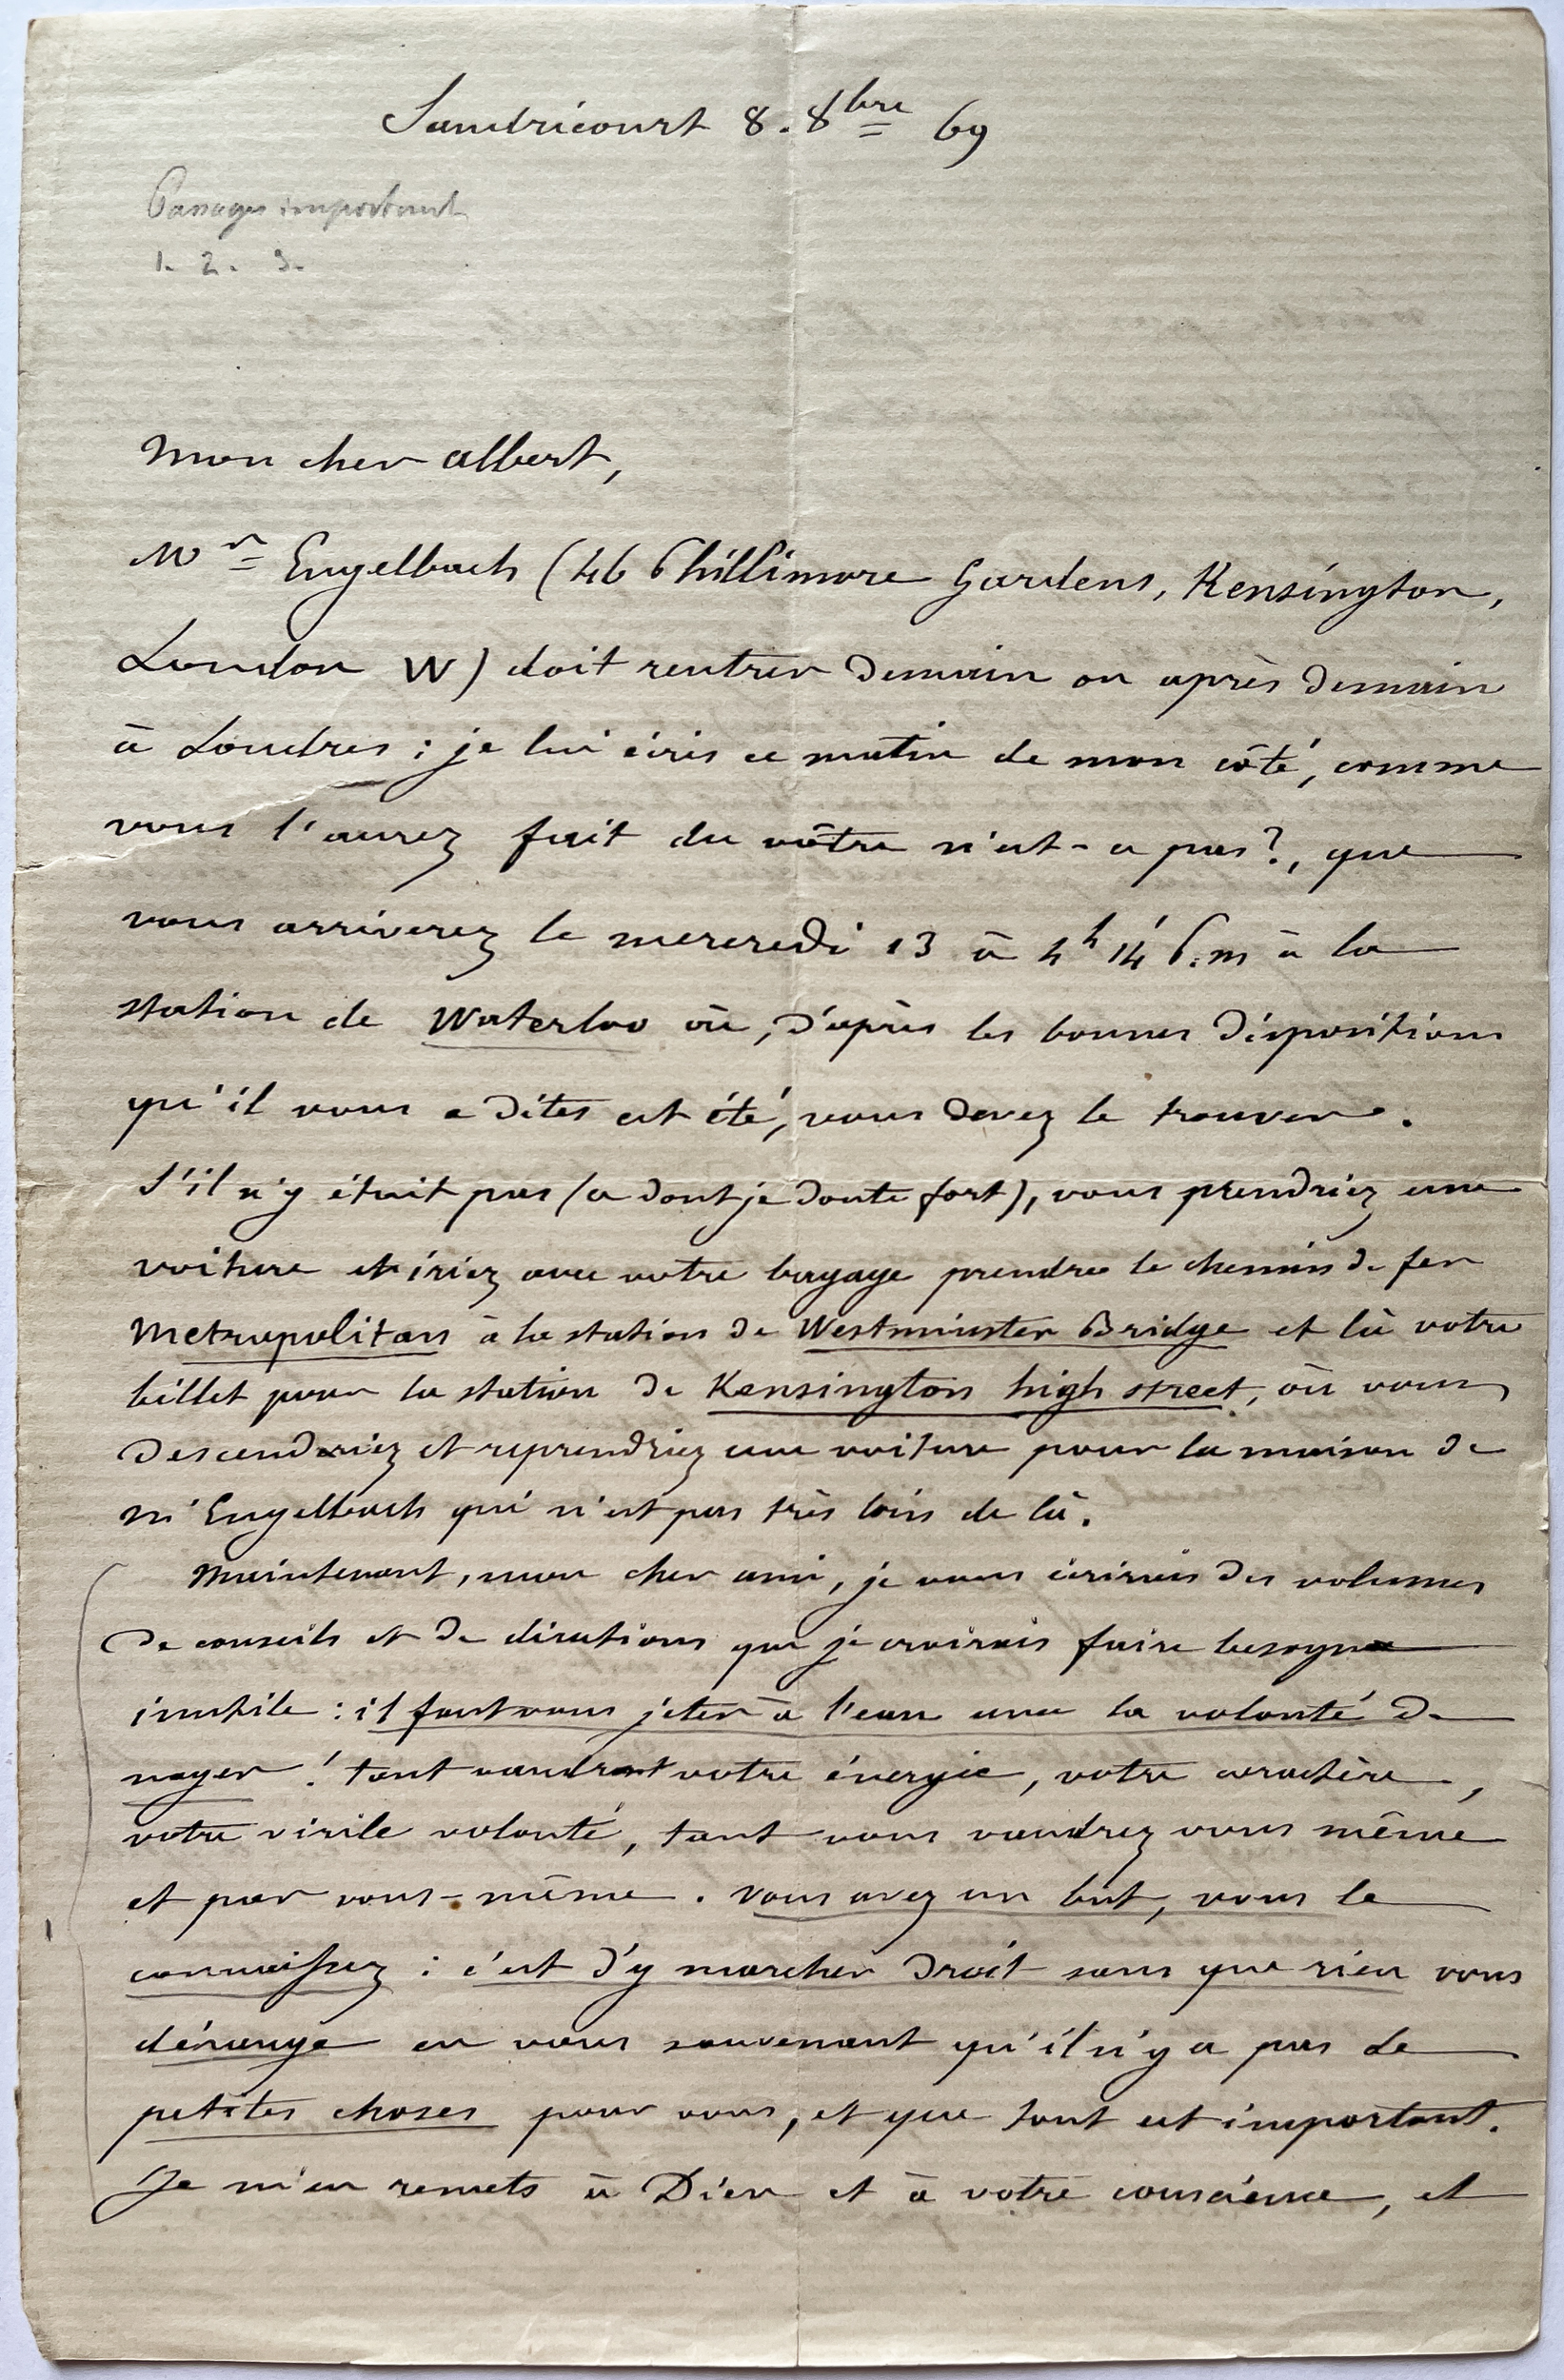 Sandricourt 8. 8bre 69
Passages importants
1. 2. 3.
Mon cher Albert,
Mr Engelbach (46 Phillimore Gardens, Kensington,
London W) doit rentrer demain ou après demain
à Londres : je lui écris ce matin de mon côté, comme
vous l'aurez fait du vôtre n'est-ce pas?, que
vous arriverez le mercredi 13 à 4h 14' P.m à la
station de Waterloo où, d'après les bonnes dispositions
qu'il vous a dites cet été, vous devez le trouver.
S'il n'y était pas (ce dont je doute fort), vous prendriez une
voiture et iriez avec votre bagage prendre le chemin de fer
Metropolitan à la station de Westminster Bridge et là votre
billet pour la station de Kensington high street, où vous
descendriez et reprendriez une voiture pour la maison de
Mr Engelbach qui n'est pas très loin de là.
Maintenant, mon cher ami, je vous écrirais des volumes
de conseils et de directions que je croirais faire besogne
inutile : il faut vous jeter à l'eau avec la volonté de
nager ! tant vaudront votre énergie, votre caractère,
votre virile volonté, tant vous vaudrez vous même
et par vous-même. Vous avez un but, vous le
connaissez : c'est d'y marcher droit sans que rien vous
dérange en vous souvenant qu'il n'y a pas de
petites choses pour vous, et que tout est important.
1
Je m'en remets à Dieu et à votre conscience, et